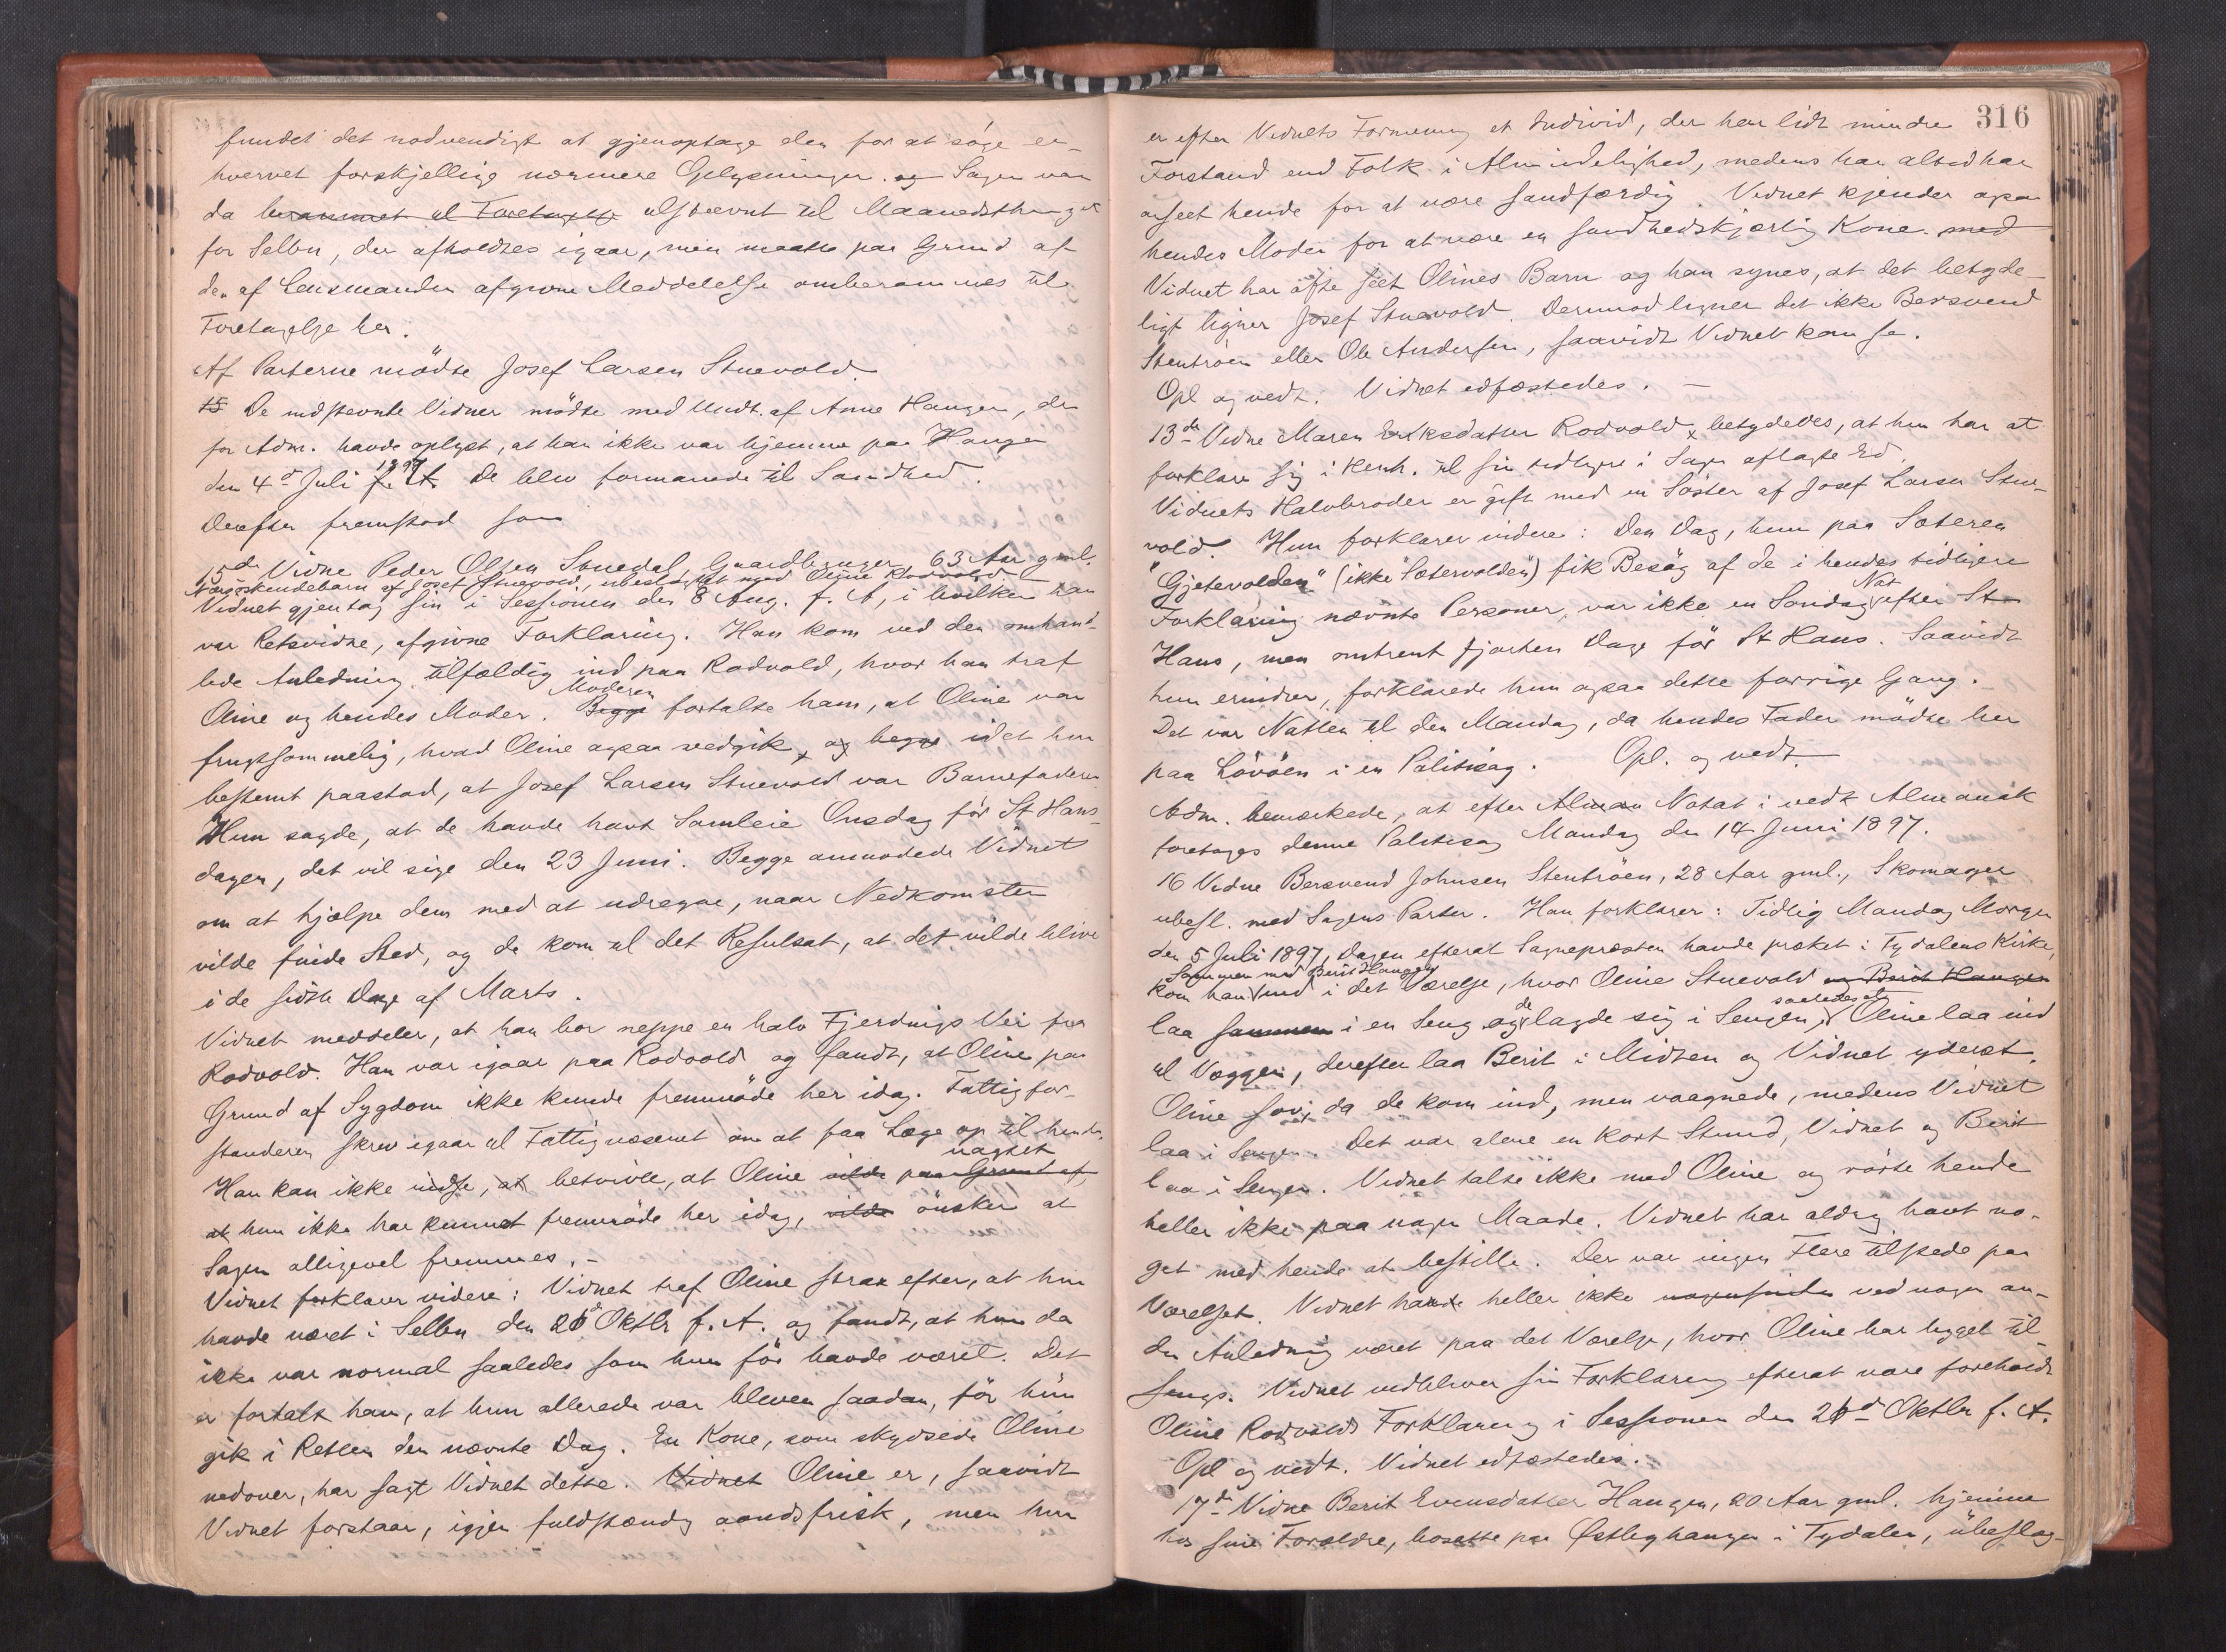 fundet det nødvendigt at gjenoptage den for at søge er-
hvervet forskjellige nærmere Oplysninger. og Sagen var
da beranmet til Foretagelse udstevnt til Maanedsthinget
for Selbu, der afholdtes igaar, men maatte paa Grund af
den af Lensmanden afgivne Meddelelse omberammes til
Foretagelse her.
Af Parterne mödte Josef Larsen Stuevold.
15 De indstevnte Vidner mödte med Undt. af Anne Haugen, der
for Adm. havde oplyst, at han ikke var hjemme paa Haugen
den 4de Juli f. A. 1897 De blev formanede til Sandhed.
Derefter fremstod som
15de Vidne Peder Olsen Svuedal, Gaardbruger 63 Aar gml.
Næstsøskendebarn af Josef Stuevold, ubeslægtet med Oline Rodvold.
Vidnet gjentog sin i Sessionen den 8 Aug. f. A., i hvilken han
var Retsvidne, afgivne Forklaring. Han kom ved den omhand-
lede Anledning tilfældig ind paa Rodvold, hvor han traf
Oline og hendes Moder. Begge Moderen fortalte ham, at Oline var
frugtsommelig, hvad Oline ogsaa vedgik, og begge idet hun
bestemt paastod, at Josef Larsen Stuevold var Barnefaderen
Hun sagde, at de havde havt Samleie Onsdag før St Hans-
dagen, det vil sige den 23 Juni. Begge anmodede Vidnet
om at hjælpe dem med at udregne, naar Nedkomsten
vilde finde Sted, og de kom til det Resultat, at det vilde blive
i de sidste Dage af Marts.
Vidnet meddeler, at han bor neppe en halv Fjerdings Vei fra
Rodvold. Han var igaar paa Rodvold og fandt, at Oline paa
Grund af Sygdom ikke kunde fremmöde her idag. Fattigfor-
standeren skrev igaar til Fattigvæsenet om at faa Læge op til hende.
Han kan ikke indse, at betvivle, at Oline vilde paa Grund af uagtet
at hun ikke har kunnet fremmöde her idag, vilde önsker at
Sagen alligevel fremmes. –
Vidnet forklarer videre: Vidnet traf Oline strax efter, at hun
havde været i Selbu den 26de Oktbr f. A. og fandt, at hun da
ikke var normal saaledes som hun för havde været. Det
er fortalt ham, at hun allerede var bleven saadan, för hun
gik i Retten den nævnte Dag. En Kone, som skydsede Oline
nedover, har sagt Vidnet dette. Vidnet Oline er, saavidt
Vidnet forstaar, igjen fuldstændig aandsfrisk, men hun
316
er efter Vidnets Formening et Individ, der har lidt mindre
Forstand end Folk i Almindelighed, medens han altid har
anseet hende for at være sandfærdig. Vidnet kjender ogsaa
hendes Moder for at være en sandhedskjærlig Kone. med
Vidnet har ofte seet Olines Barn og han synes, at det betyde-
ligt ligner Josef Stuevold. Derimod ligner det ikke Bersvend
Stentröen eller Ole Andersen, saavidt Vidnet kan se.
Opl og vedt. Vidnet edfæstedes. –
13de Vidne Maren Eriksdatter Rodvold betydedes, at hun har at
forklare sig i Kenh. til sin tidligere i Sagen aflagte Ed.
Vidnets Halvbroder er gift med en Söster af Josef Larsen Stue-
vold. Hun forklarer videre: Den Dag, hun paa Sæteren
"Gjetevolden" (ikke "Sætervolden") fik Besög af de i hendes tidligere
Forklaring nævnte Personer, var ikke en Søndag Nat efter St
Hans, men omtrent fjorten Dage för St Hans. Saavidt
hun erindrer, forklarede hun ogsaa dette forrige Gang.
Det var Natten til den Mandag, da hendes Fader mödte her
paa Lövöen i en Politisag. Opl. og vedt.
Adm. bemærkede, at efter Alman Notat i vedk Almanak
foretoges denne Politisag Mandag den 14 Juni 1897.
16 Vidne Bersvend Johnsen Stentröen, 28 Aar gml., Skomager
ubesl. med Sagens Parter. Han forklarer: Tidlig Mandag Morgen
den 5 Juli 1897, Dagen efterat Sognepræsten havde præket i Tydalens Kirke,
Sammen med Berit Haugen
kom han ind i det Værelse, hvor Oline Stuevold og Berit Haugen
laa sammen i en Seng og de lagde sig i Sengen, saaledes at Oline laa ind
til Væggen, derefter laa Berit i Midten og Vidnet yderst.
Oline sov, da de kom ind, men vaagnede, medens Vidnet
laa i Sengen. Det var alene en kort Stund, Vidnet og Berit
laa i Sengen. Vidnet talte ikke med Oline og rörte hende
heller ikke paa nogen Maade. Vidnet har aldrig havt no-
get med hende at bestille. Der var ingen Flere tilstede paa
Værelset. Vidnet havde heller ikke nogensinde ved nogen an-
den Anledning været paa det Værelse, hvor Oline har ligget til
sengs. Vidnet vedbliver sin Forklaring efterat være foreholdt
Oline Rodvolds Forklaring i Sessionen den 26de Oktbr f. A.
Opl og vedt. Vidnet edfæstedes.
17de Vidne Berit Evensdatter Haugen, 20 Aar gml. hjemme
hos sine Forældre, bosatte paa Østbyhaugen i Tydalen, ubeslæg-